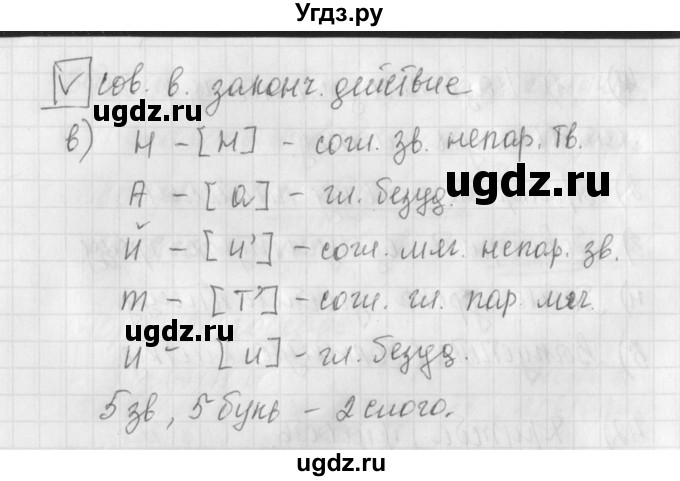 Угдз.ру
V сов. в. законч. действие
ugdz.ru
в) н – [н] – согл. зв. непар. тв.
А – [а] – гл. безуд.
ugdz.ru
Й – [й'] – согл. мяг. непар. зв.
т – [т'] – согл. гл. пар. мяг.
ugdz.ru
и – [и] – гл. безуд.
5 зв, 5 букв – 2 слога.
ugdz.ru